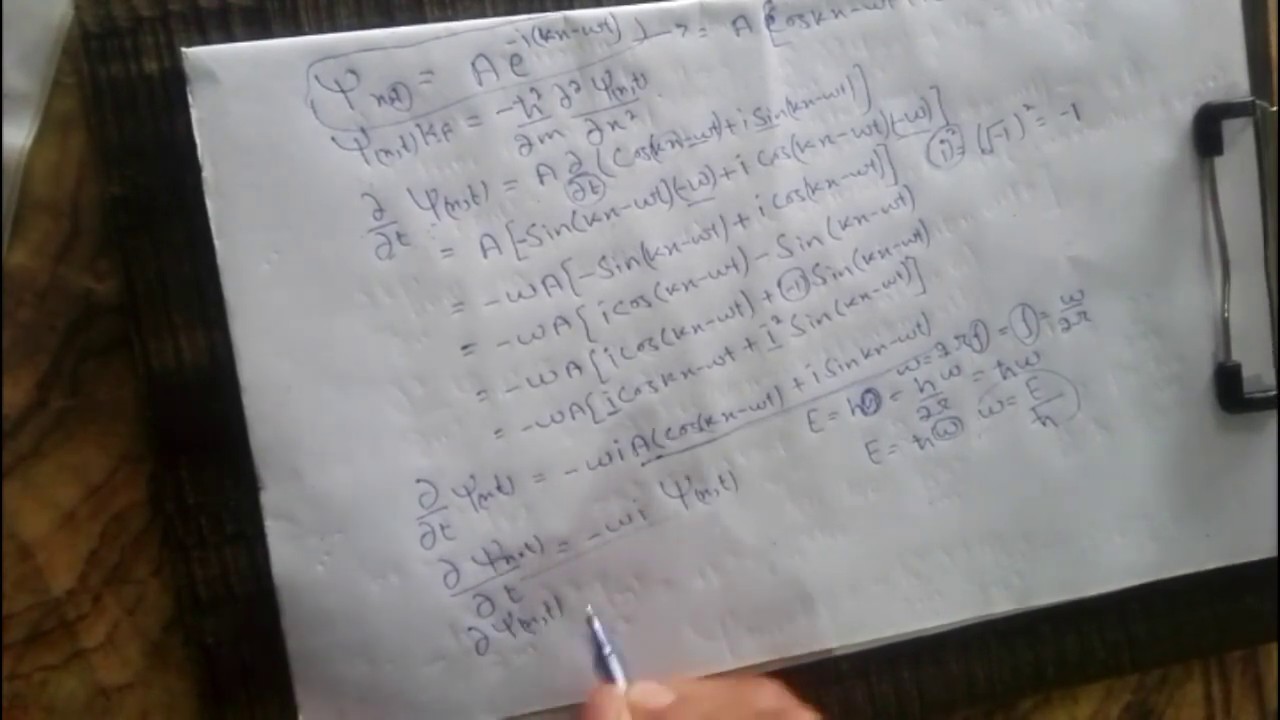 Ψ(x,t) = A e^{-i(kx-ωt)} → = A[Cos kx-ωt
Ψ(x,t) K.E = -ħ²/2m ∂²Ψ(x,t)/∂x²
∂/∂t Ψ(x,t) = A ∂/∂t (Cos(kx-ωt) + i Sin(kx-ωt)]
= A[-Sin(kx-ωt)(-ω) + i Cos(kx-ωt)(-ω)] i² = (√-1)² = -1
= -ωA[-Sin(kx-ωt) + i Cos(kx-ωt)]
= -ωA[i Cos(kx-ωt) - Sin(kx-ωt)
= -ωA[i Cos(kx-ωt) + (-1) Sin(kx-ωt)
= -ωA[i Cos kx-ωt + i² Sin(kx-ωt)]
∂/∂t Ψ(x,t) = -ωi A(Cos(kx-ωt) + i Sin kx-ωt)
ω = 2πf = f = ω/2π
E = hf = hω/2π = ħω
E = ħω, ω = E/ħ
∂Ψ(x,t)/∂t = -ωi Ψ(x,t)
∂Ψ(x,t)